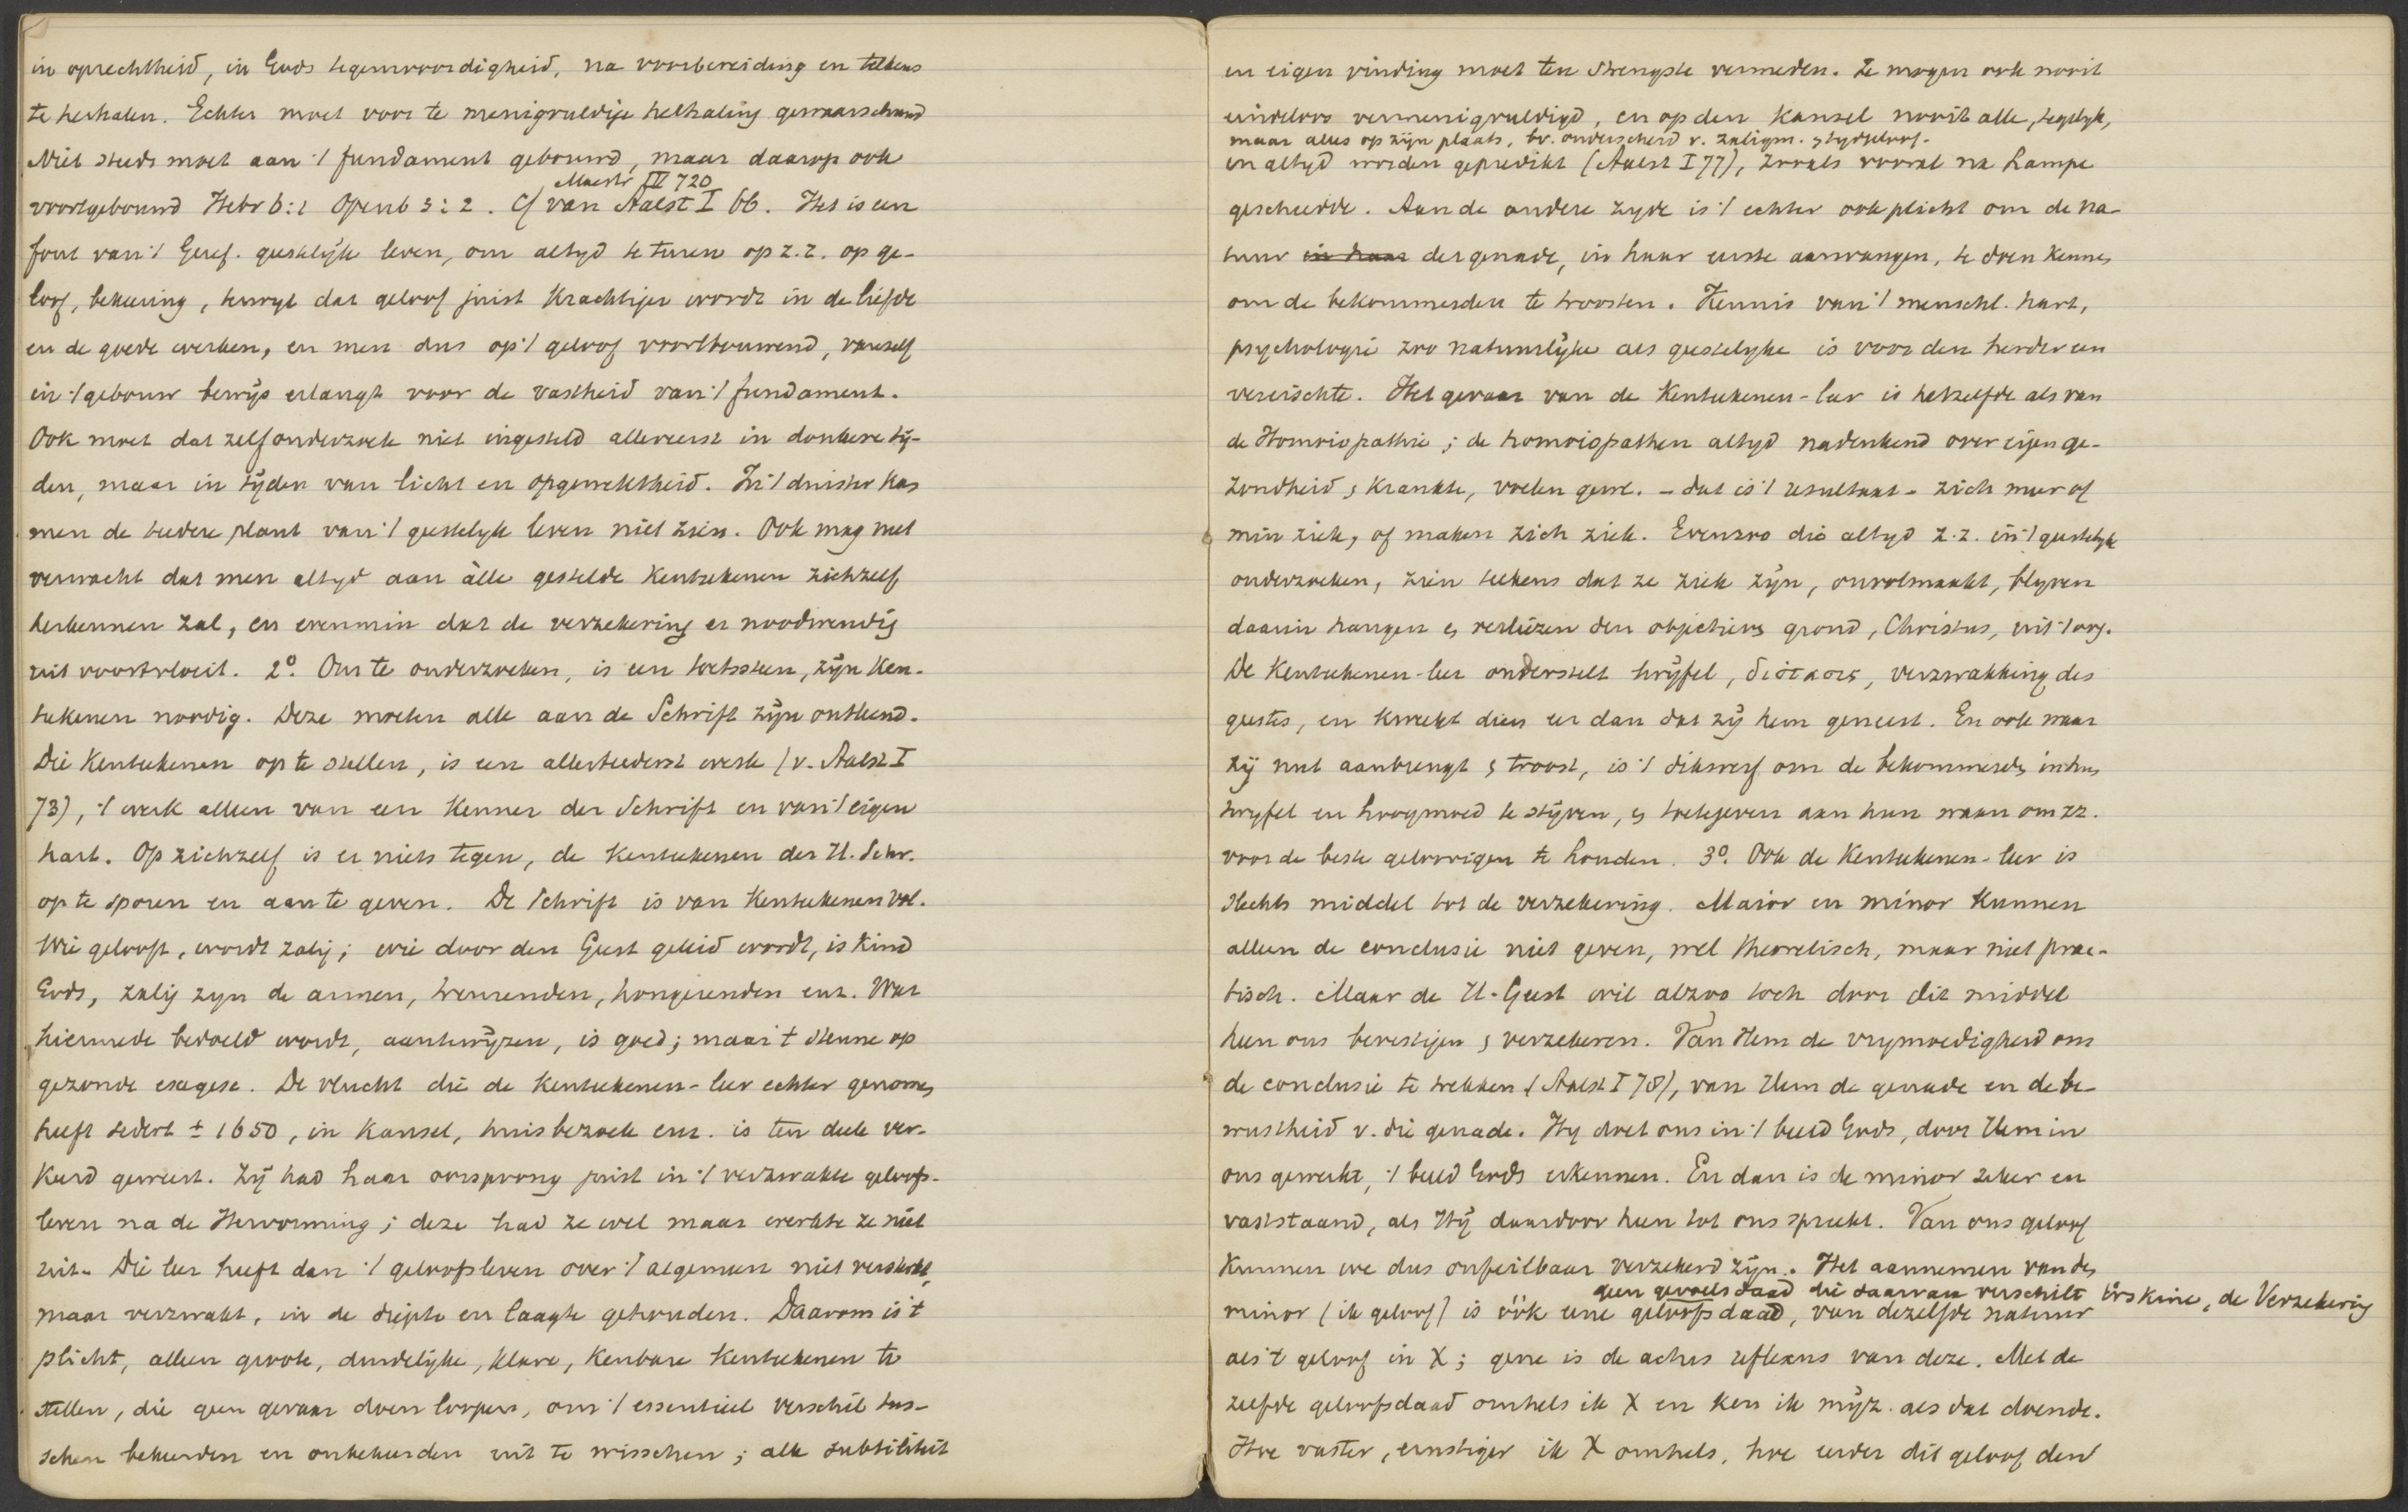 in oprechtheid, in Gods tegenwoordigheid, na voorbereiding en telkens
te herhalen. Echter moet voor te menigvuldige helhaling gewaarschuwd
Niet steeds moet aan 't fundament gebouwd, maar daarop ook
Mastr IV 720
voortgebouwd Hebr 6:1 Openb 3:2. Cf van Aalst I 66. Het is een
fout van 't Geref. geestelijk leven, om altyd te turen op z.z. op ge-
loof, bekeering, terwyl dat geloof juist krachtiger wordt in de liefde
en de goede werken, en men dus op 't geloof voortbouwend, vanzelf
in 't gebouw bewijs erlangt voor de vastheid van 't fundament.
Ook moet dat zelfonderzoek niet ingesteld allereerst in donkere tij-
den, maar in tijden van licht en opgewektheid. In 't duister kan
men de teedere plant van 't geestelyk leven niet zien. Ook mag niet
verwacht dat men altyd aan àlle gestelde kenteekenen zichzelf
herkennen zal, en evenmin dat de verzekering er noodwendig
uit voortvloeit. 2º. Om te onderzoeken, is een toetssteen, zijn ken-
teekenen noodig. Deze moeten alle aan de Schrift zijn ontleend.
Die kenteekenen op te stellen, is een allerteederst werk (v. Aalst I
73), 't werk alleen van een kenner der Schrift en van 't eigen
hart. Op zichzelf is er niets tegen, de kenteekenen der H. Schr.
op te sporen en aan te geven. De Schrift is van kenteekenen vol.
Wie gelooft, wordt zalig; wie door den Geest geleid wordt, is kind
Gods, zalig zyn de armen, treurenden, hongerenden enz. Wat
hiermede bedoeld wordt, aantewijzen, is goed; maar 't steune op
gezonde exegese. De vlucht die de kenteekenen-leer echter genomen
heeft sedert ± 1650, in kansel, huisbezoek enz. is ten deele ver-
keerd geweest. Zij had haar oorsprong juist in 't verzwakte geloofs-
leven na de Hervorming; deze had ze wel maar werkte ze niet
uit. Die leer heeft dan 't geloofsleven over 't algemeen niet versterkt,
maar verzwakt, in de diepte en laagte gehouden. Daarom is 't
plicht, alleen groote, duidelijke, klare, kenbare kenteekenen te
stellen, die geen gevaar doen loopen, om 't essentieel verschil tus-
schen bekeerden en onbekeerden uit te wisschen; alle subtiliteit
en eigen vinding moet ten strengste vermeden. Ze mogen ook nooit
eindeloos vermenigvuldigd, en op den kansel nooit alle, tegelyk,
maar alles op zijn plaats, bv. onderscheid v. zaligm. & tydgeloof.
en altyd worden gepredikt (Aalst I 77), zooals vooral na Lampe
geschiedde. Aan de andere zyde is 't echter ook plicht om de na-
tuur in haar der genade, in haar eerste aanvangen, te doen kennen
om de bekommerden te troosten. Kennis van 't menschl. hart,
psychologie zoo natuurlijke als geestelyke is voor den herder een
vereischte. Het gevaar van de kenteekenen-leer is hetzelfde als van
de Homoiopathie; de homoiopathen altyd nadenkend over eigen ge-
zondheid & krankte, voelen gew. - dat is 't resultaat - zich meer of
min ziek, of maken zich ziek. Evenzoo die altyd z.z. in 't geestelyk
onderzoeken, zien telkens dat ze ziek zijn, onvolmaakt, blyven
daarin hangen & verliezen den objectieven grond, Christus, uit 't oog.
De kenteekenen-leer onderstelt twijfel, verzwakking des
geestes, en kweekt dien eer dan dat zij hem geneest. En ook waar
zij nut aanbrengt & troost, is 't dikwerf om de bekommerden in hun
twyfel en hoogmoed te stijven, & toetegeven aan hun waan om zz.
voor de beste geloovigen te houden. 3º. Ook de kenteekenen-leer is
slechts middel tot de verzekering. Maior en minor kunnen
alleen de conclusie niet geven, wel theoretisch, maar niet prac-
tisch. Maar de H. Geest wil alzoo toch door dit middel
heen ons bevestigen & verzekeren. Van Hem de vrymoedigheid om
de conclusie te trekken (Aalst I 78), van Hem de genade en de be-
wustheid v. die genade. Hy doet ons in 't beeld Gods, door Hem in
ons gewerkt, 't beeld Gods erkennen. En dan is de minor zeker en
vaststaand, als Hij daardoor heen tot ons spreekt. Van ons geloof
kunnen we dus onfeilbaar verzekerd zijn. Het aannemen van den
geen gevoelsdaad die daarvan verschilt Erskine, de Verzekering
minor (ik geloof) is óók eene geloofsdaad, van dezelfde natuur
als 't geloof in X; gene is de actus reflexus van deze. Met de
zelfde geloofsdaad omhels ik X en ken ik mijz. als dat doende.
Hoe vaster, ernstiger ik X omhels, hoe eerder dit geloof den